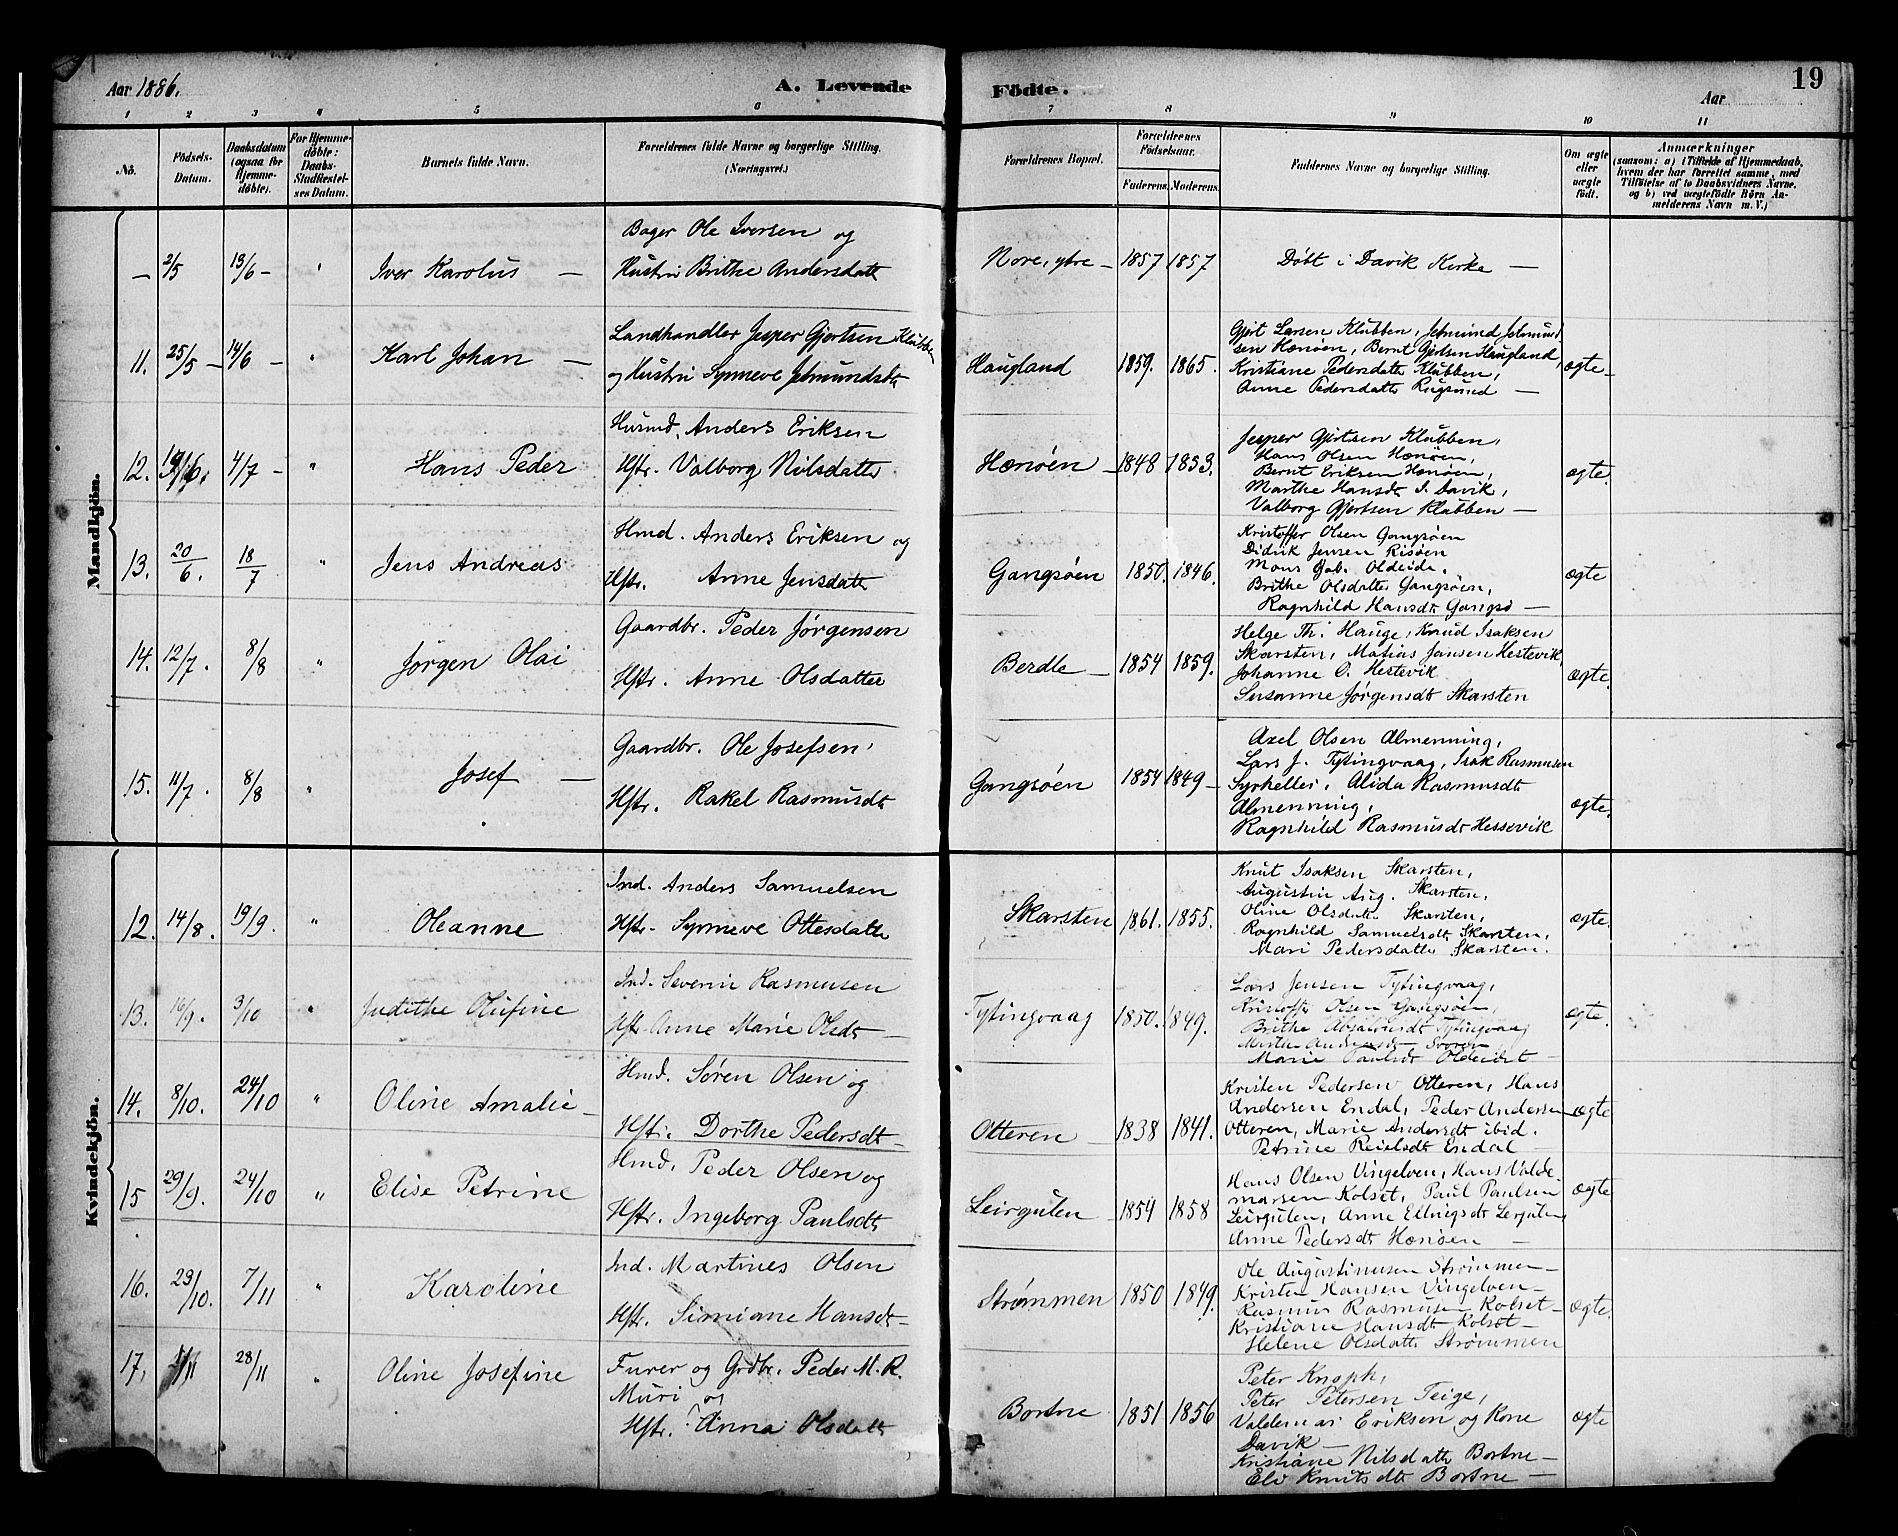 Aar 1886.
A. Levende
Födte.
19
Aar
1 2 3 4 5 6 7 8 9 10 11
No.
Födsels-Datum.
Daabsdatum (ogsaa for Hjemme-döbte).
For Hjemme-döbte: Daabs-Stadfæstel-ses Datum.
Barnets fulde Navn.
Forældrenes fulde Navne og borgerlige Stilling. (Næringsvei.)
Forældrenes Bopæl.
Forældrenes Födselsaar.
Faderens. Moderens.
Faddernes Navne og borgerlige Stilling.
Om ægte eller uægte födt.
Anmærkninger
(saasom: a) i Tilfælde af Hjemmedaab,
hvem der har forrettet samme, med
Tilföielse af to Daabsvidners Navne,
og b) ved uægtefödte Börn An-
melderens Navn m. V.)
Mandkjön.
— 2/5 13/6 – " Iver Karolus —
Bager Ole Iversen og
Hustru Brithe Andersdatt
Nore, ytre – 1857 1857
Döbt i Davik Kirke —
11. 25/5 – 14/6 – " Karl Johan —
Landhandler Jesper Gjertsen Klubben
og Hustru Synneve Jetmundsdt
Haugland 1859. 1865.
Gjert Larsen Klubben, Jetmund Jetmund
sen Hænöen, Bernt Gjertsen Haugland,
Kristiane Pedersdatt Klubben,
Anne Pedersdatt Rugsund —
ægte –
12. 4/7 – " Hans Peder
Husmd. Anders Eriksen
Hstr. Valborg Nilsdatter
Hænöen – 1848 1853.
Jesper Gjertsen Klubben,
Hans Olsen Hænöen,
Bernt Eriksen Hænöen,
Marthe Hansdt I. Davik,
Valborg Gjertsen Klubben —
ægte.
13. 20/6. 18/7 " Jens Andreas
Hmd. Anders Eriksen og
Hstr. Anne Jensdatt
Gangsöen 1850. 1846.
Kristoffer Olsen Gangsöen
Didrik Jensen Risöen
Mons Gab. Oldeide.
Brithe Olsdatter Gangsöen,
Ragnhild Hansdt Gangsö —
ægte
14. 12/7. 8/8 " Jörgen Olai
Gaardbr. Peder Jörgensen
Hstr. Anne Olsdatter
Berdle – 1854 1859.
Helge Th. Hauge, Knud Isaksen
Skarsten, Matias Jansen Hestevik,
Johanne O. Hestevik
Susanne Jörgensdt Skarsten
ægte.
15. 11/7. 8/8 " Josef —
Gaardbr. Ole Josefsen,
Hstr. Rakel Rasmusdt
Gangsöen 1854 1849 –
Axel Olsen Almenning,
Lars J. Tytingvaag, Isak Rasmusen
Syrheller, Alida Rasmusdt
Almenning,
Ragnhild Rasmusdt Hessevik
ægte.
Kvindekjön.
12. 14/8. 19/9. " Oleanne
Ind. Anders Samuelsen
Hstr. Synneve Ottesdatt
Skarsten 1861. 1855.
Knut Isaksen Skarsten,
Augustin Aug. Skarsten,
Oline Olsdatt Skarsten,
Ragnhild Samuelsdt Skarsten,
Mari Pedersdatt Skarsten.
ægte.
13. 16/9. 3/10 " Judithe Olufine
Ind. Severin Rasmusen
Hstr. Anne Marie Olsdt –
Tytingvaag 1850. 1849.
Lars Jensen Tytingvaag,
Kristoffer Olsen Gangsöen,
Brithe Absalonsdt Tytingvaag
Marie Paulsdt Oldeidet –
ægte.
14. 8/10. 24/10 " Oline Amalie –
Hmd. Sören Olsen og
Hstr. Dorthe Pedersdt –
Otteren – 1838 1841.
Kristen Pedersen Otteren, Hans
Andersen Endal, Peder Andersen
Otteren, Marie Andersdt ibid.
Petrine Reielsdt Endal
ægte
15 29/9. 24/10 " Elise Petrine
Hmd. Peder Olsen og
Hstr. Ingeborg Paulsdt
Leirgulen 1854 1858
Hans Olsen Vingelven, Hans Valde
marsen Kolset, Paul Paulsen
Leirgulen, Anne Ellingsdt Lergulen
Anne Pedersdt Hænöen —
ægte
16. 23/10. 7/11 " Karoline
Ind. Martines Olsen
Hstr. Simiane Hansdt –
Strömmen 1850 1849.
Ole Augustinusen Strömmen –
Kristen Hansen Vingelven –
Rasmus Rasmusen Kolset –
Kristiane Hansdt Kolset –
Helene Olsdatt Strömmen
ægte.
17. 28/11 " Oline Josefine
Furer og Grdbr. Peder M. R.
Muri og
Hstr. Anna Olsdatt
Bortne 1851 1856
Peter Knoph,
Peter Petersen Teige,
Valdemar Eriksen og Kone
Davik –
Kristiane Nilsdatt Bortne –
Eli Knutsdt Bortne –
ægte